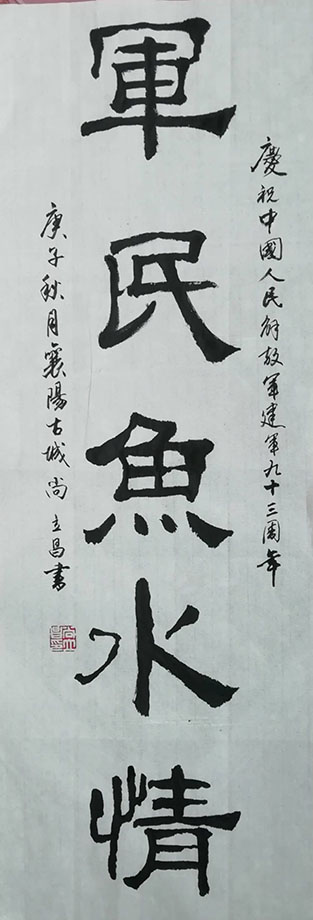 慶祝中國人民解放军建军九十三周年
軍民魚水情
庚子秋月襄陽古城尚立昌書